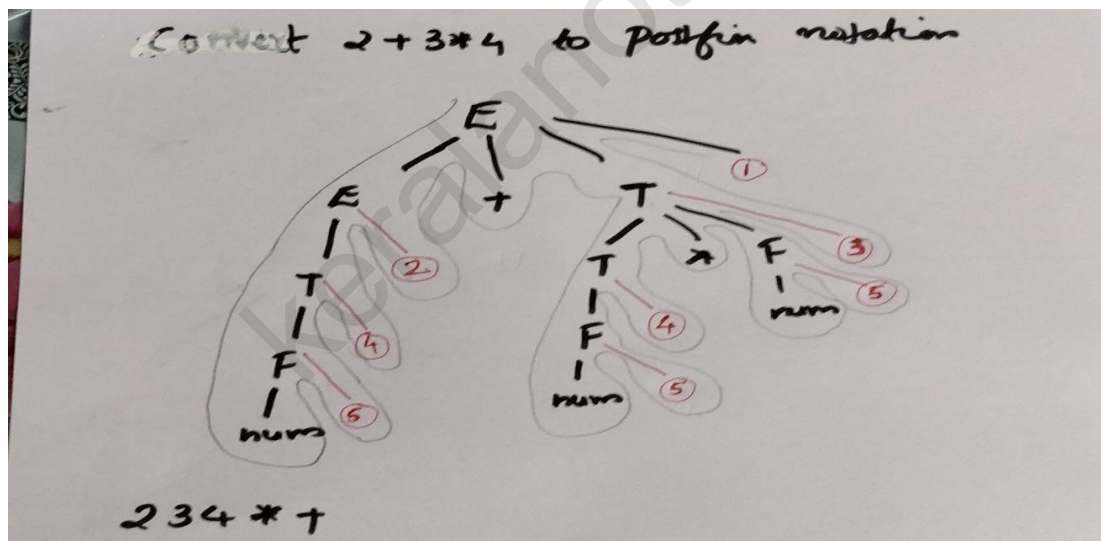 Convert 2 + 3 * 4 to Postfin notation
E
1
E + T
3
2
T * F
T
4
5
num
4
F
F
5
5
num
num
2 3 4 * +